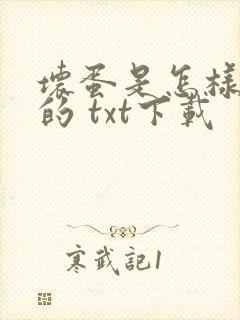 壞蛋是怎樣
的 txt下載
寒武記1